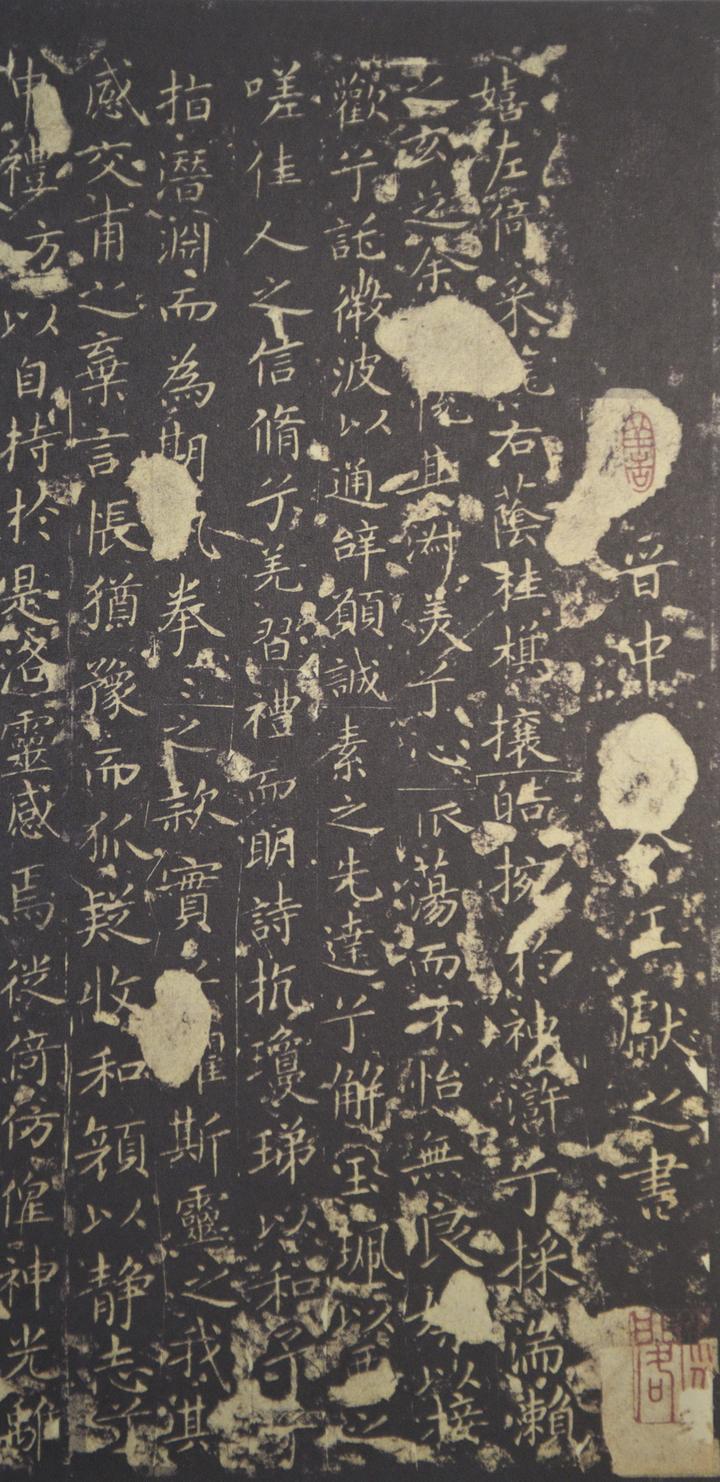 晉中 令王獻之書
嬉左倚采旄右蔭桂棋攘皓捥於神滸兮採湍瀨
之玄芝余 悅其淑美兮心 蕩而不怡無良媒以接
歡兮託微波以通辝願誠素之先達兮解玉珮以 之
嗟佳人之信脩兮羌習禮而明詩抗瓊珶以和予兮
指潛淵而為期執拳〻之款實兮 斯靈之我其
感交甫之棄言悵猶豫而狐疑收和顏以静志兮
申禮方以自持於是洛靈感焉從倚仿偟神光離